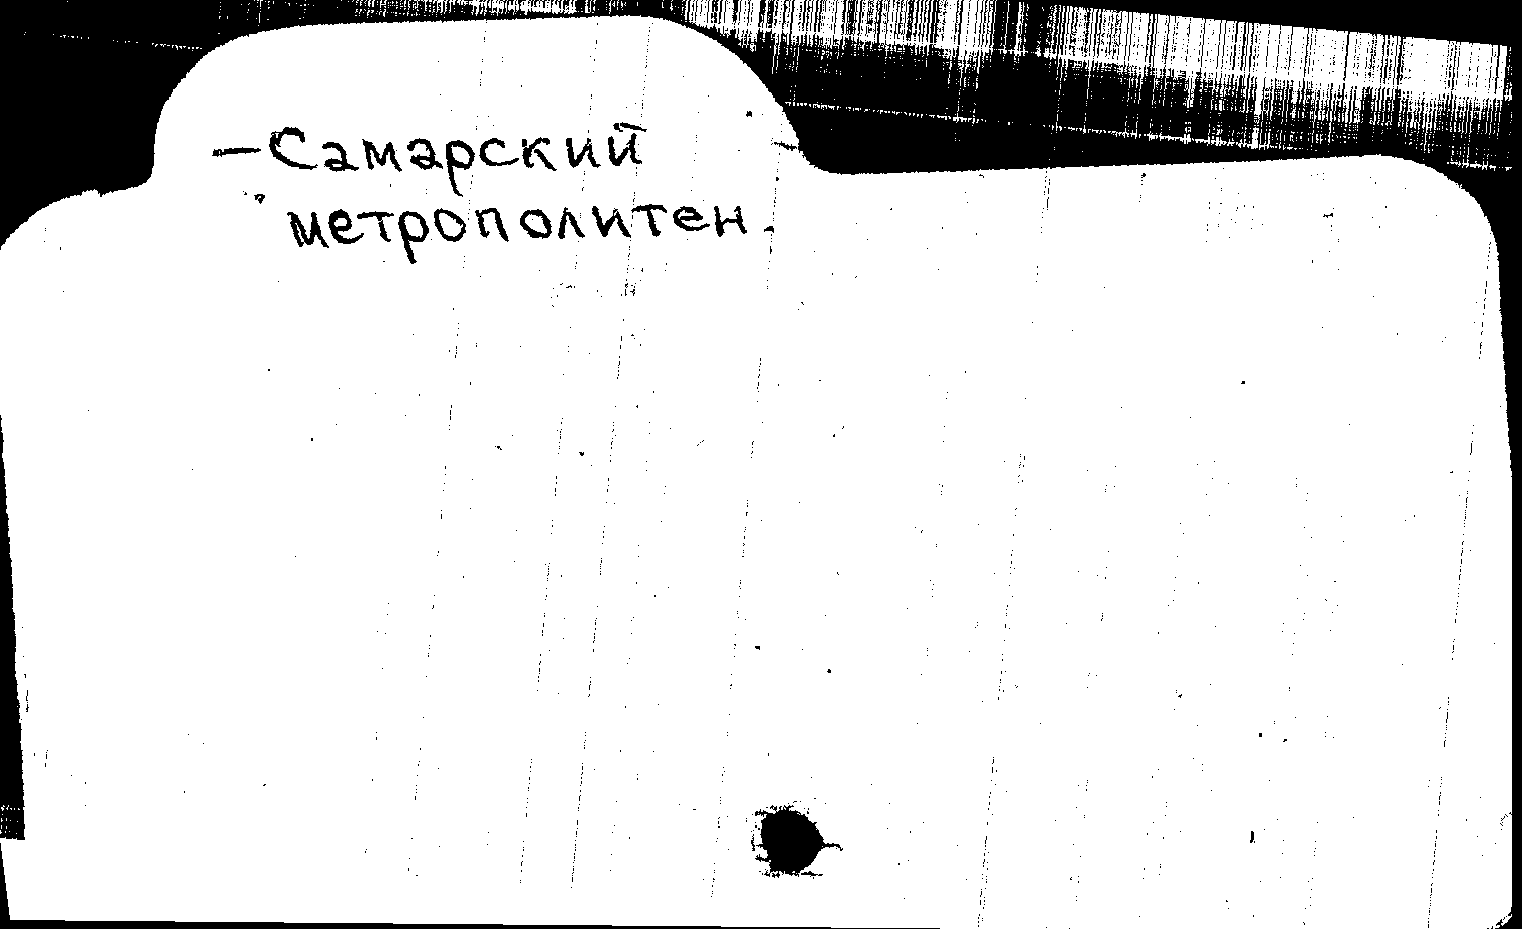 — Самарский
метрополитен.